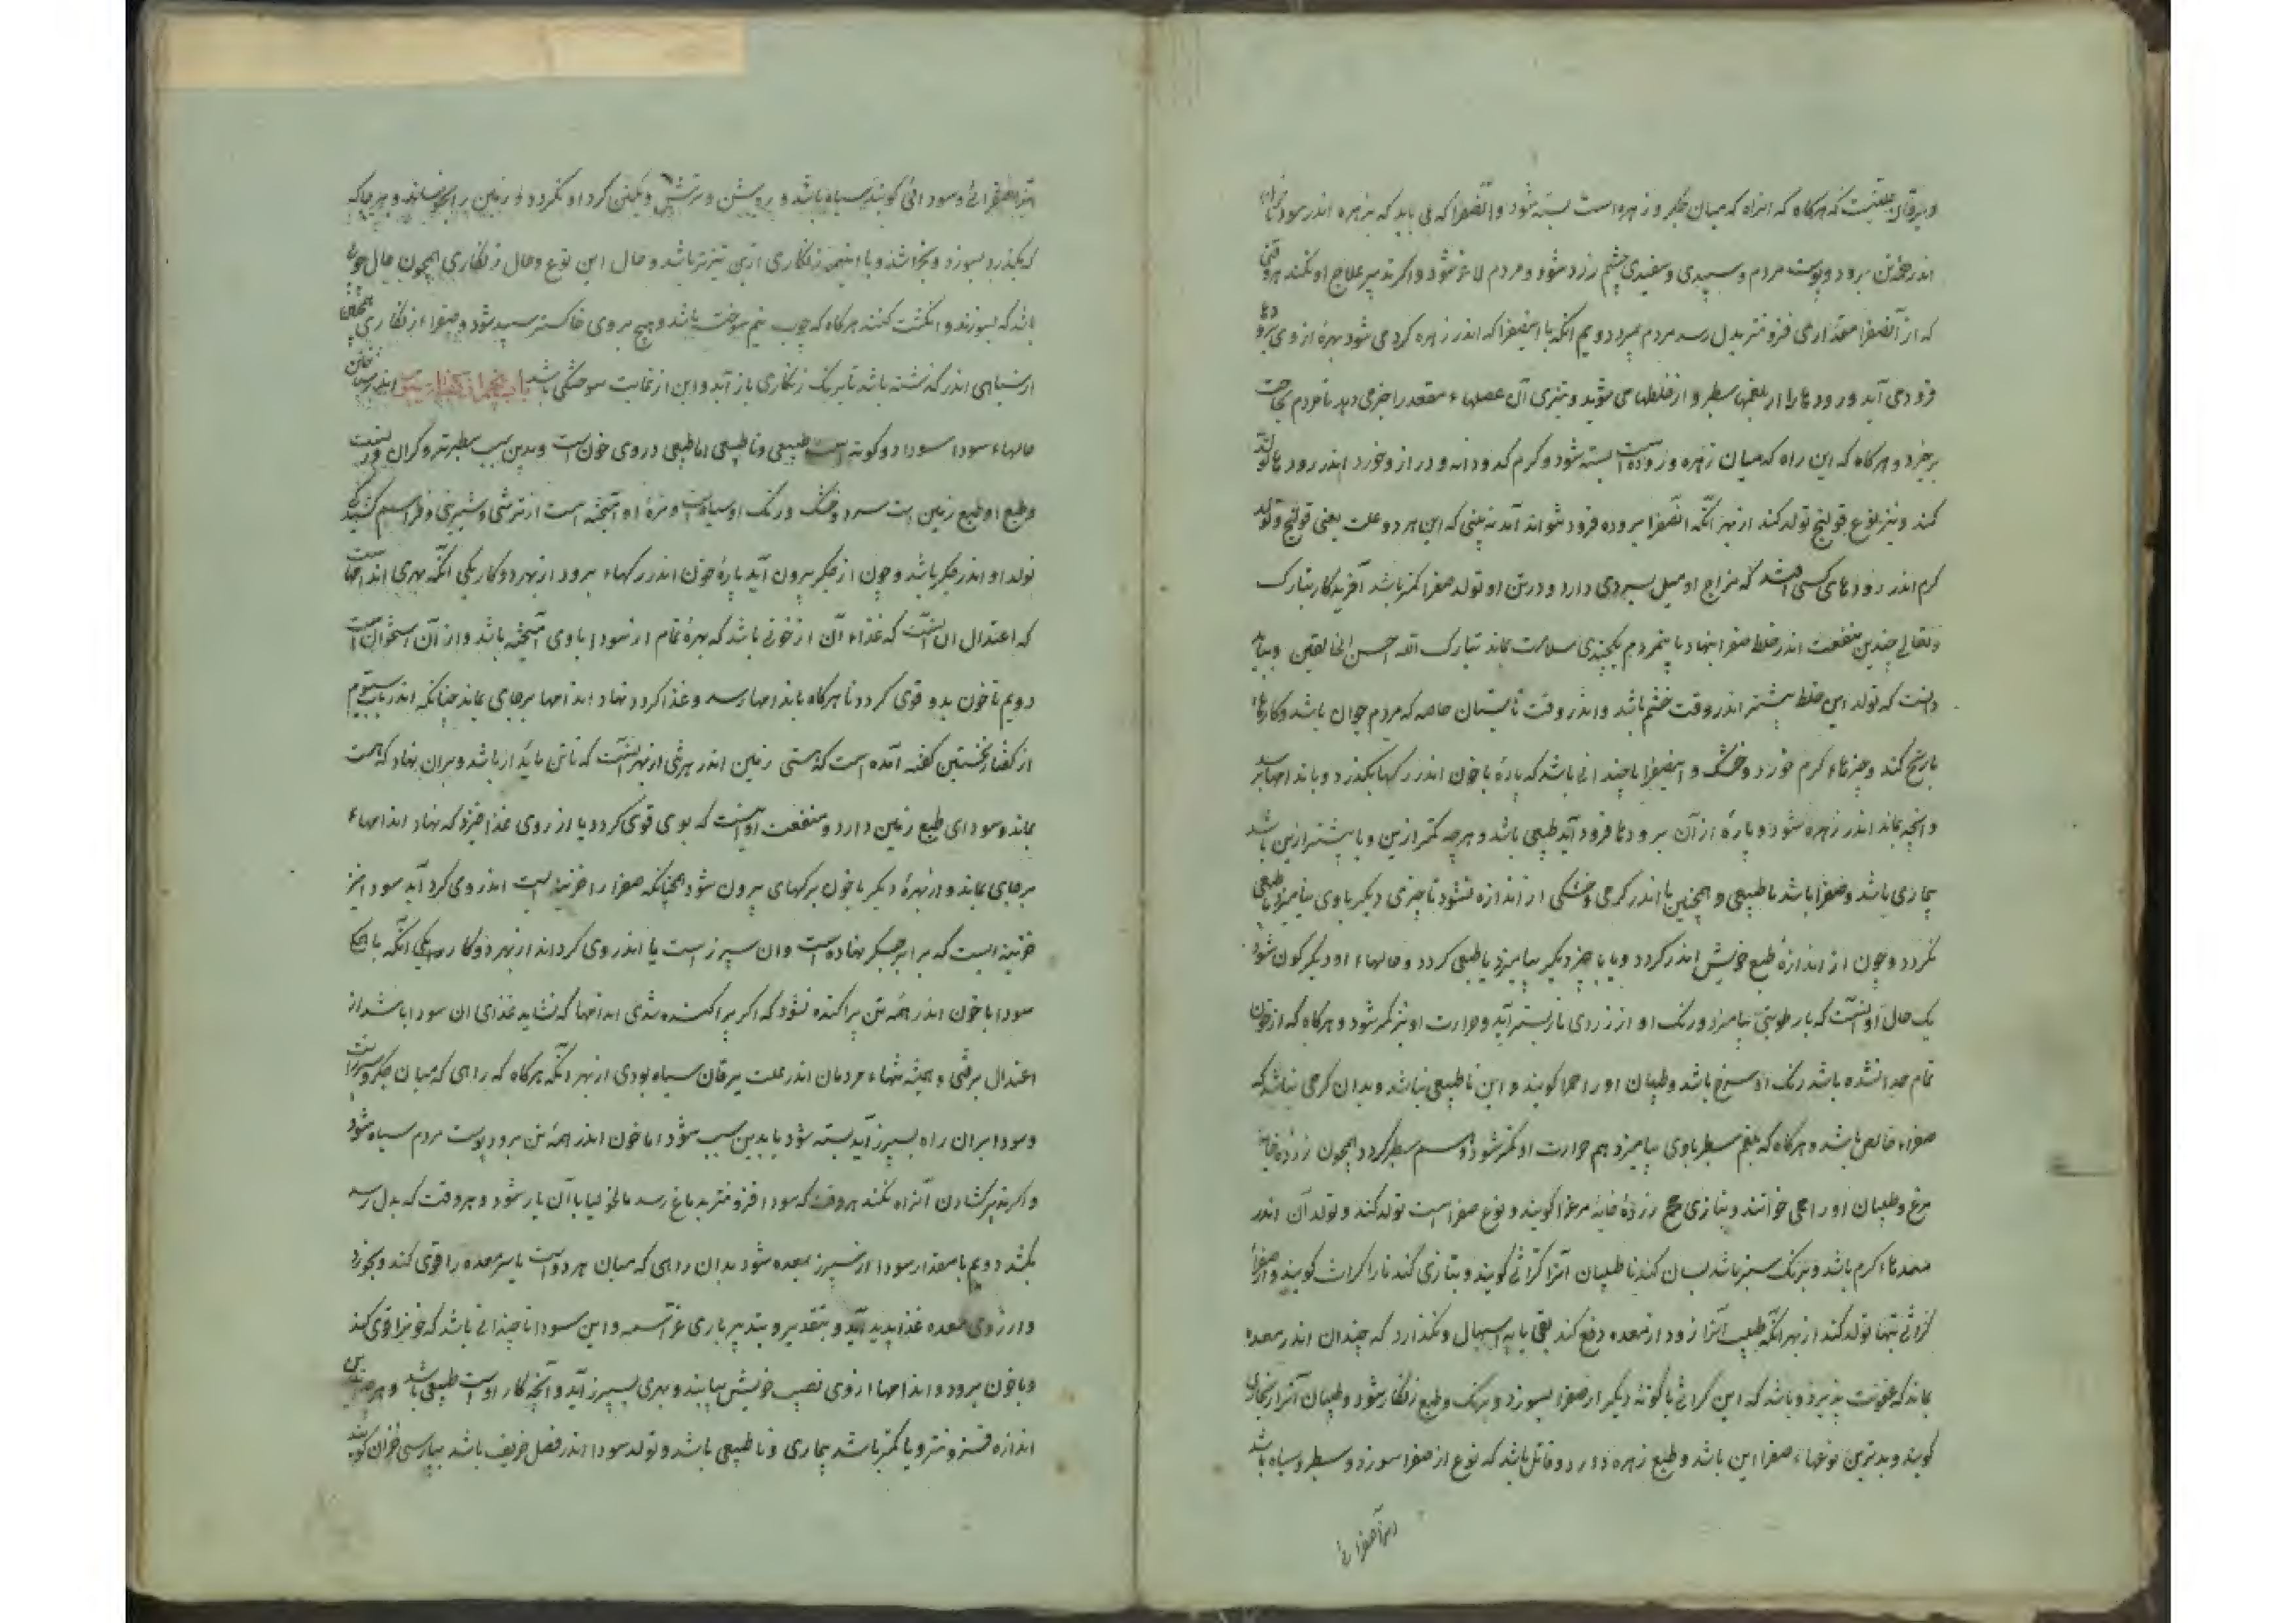 و یرقان علتیست که هرکاه که انراه که میان جکر و زهره است بسته شود و انصفرا که می باید که بزهره اندر سود با خون
اندر همه تن برود و پوست مردم و سپیدی و سفیدی چشم زرد شود و مردم لاغر شود و اکر تدبیر علاج او نکنند هر وقتی
که از آنصفرا مقداری فزونتر بدل رسد مردم بمیرد دویم انکه با اینصفرا که اندر زهره کرد می شود بهرهٔ از وی برودها
فرود می آید و رودها را از بلغمها سطبر و از خلطها می شوید و تیزی آن عضلهاء مقعد را خبر می دهد تا مردم بحاجت
برخیزد و هرکاه که این راه که میان زهره و روده است بسته شود و کرم کدودانه و دراز و خورد اندر رودها تولد
کند و نیز نوع قولنج تولد کند از بهر آنکه انصفرا بروده فرود نتواند آمد نه بینی که این هر دو علت یعنی قولنج و تولد
کرم اندر رودهای کسی باشد که مزاج او میل بسردی دارد و در تن او تولد صفرا کمتر باشد آفریدکار تبارک
و تعالی چندین منفعت اندر خلط صفرا بنهاد تا مردم بکچندی سلامت بماند تبارک الله احسن الخالقین و بباید
دانست که تولد این خلط بیشتر اندر وقت خشم باشد و اندر وقت تابستان خاصه که مردم جوان باشد و کارها
بارنج کند و چیزهاء کرم خورد و خشک و اینصفرا تا چندانی باشد که پارهٔ با خون اندر رکها بکذرد و باندامها برسد
و انچه بماند اندر زهره شود و پارهٔ از آن برودها فرود آید طبیعی باشد و هرچه کمتر ازین و یا بیشتر ازین باشد
بیماری باشد و صفرا باشد ناطبیعی و همچنین تا اندر کرمی و خشکی از اندازه نشود تا چیزی دیکر با وی نیامیزد ناطبیعی
نکردد و چون از اندازهٔ طبع خویش اندر کردد و یا با چیز دیکر بیامیزد ناطبیعی کردد و حالهاء او دیکر کون شود
یک حال او آنست که با رطوبتی بیامیزد و رنک او از زردی باز پستر آید و حرارت او نیز کمتر شود و هرکاه که از خون
تمام جدا نشده باشد رنک او سرخ باشد و طبیبان او را حمرا کویند و این ناطبیعی نباشد و بدان کرمی نباشد که
صفراء خالص باشد و هرکاه که بلغم سطبر با وی بیامیزد هم حرارت او کمتر شود و هم سطبر کردد همچون زردهٔ خایه
مرغ و طبیبان او را محی خوانند و بتازی مح زردهٔ خایهٔ مرغ را کویند و نوع صفرا است تولد کند و تولد آن اندر
معدهاء کرم باشد و برنک سبز باشد بسان کندنا طبیبان آنرا کراثی کویند و بتازی کندنا را کراث کویند و از صفراء
کراثی تنها تولد کند از بهر آنکه طبیعت آنرا زود از معده دفع کند بقی یا باسهال و نکذارد که چندان اندر معده
بماند که عفونت پذیرد و باشد که این کراثی یا کونهٔ دیکر از صفرا بسوزد و برنک و طبع زنکار شود و طبیبان آنرا زنجاری
کویند و بدترین نوعهاء صفرا این باشد و طبع زهره دارد و قاتل باشد که نوع از صفرا سوزد و سطبر و سیاه باشد
و سودا صفرائی کویند سیاه باشد و روشن و ترش و مکس کرد او نکردد و زمین را بجوشاند و بهر جای که
که بکذرد بسوزد و بخراشد و با اینهمه زنکاری ازین تیزتر باشد و حال این نوع و حال زنکاری همچون حال چوب
باشد که بسوزند و انکشت کنند هرکاه که چوب نیم سوخته باشد و هیچ بر وی خاکستر سپید شود و صفراء زنکاری همچنین
از سیاهی اندر کذشته باشد تا برنک زنکاری باز آید و این از غایت سوختکی باشد باب پنجم از کفتار سیم اندر شناختن
حالهاء سودا سودا دو کونه است طبیعی و ناطبیعی اما طبیعی دردی خون است و بدین سبب سطبرتر و کران ترست
و طبع او طبع زمین است سرد و خشک و رنک او سیاهست و مزهٔ او آمیخته است از ترشی و شیرینی و فراهم کشیدکی
تولد او اندر جکر باشد و چون از جکر بیرون آید پارهٔ با خون اندر رکهاء برود از بهر دو کار یکی آنکه بهری اندامهاست
که اعتدال آن آنست که غذاء آن از خونی باشد که بهرهٔ تمام از سودا با وی آمیخته باشد و از آن استخوان است
دویم تا خون بدو قوی کردد تا هرکاه باندامها رسد و غذا کردد نهاد اندامها برجای بماند چنانکه اندر باب سیوم
از کفتار نخستین کفته آمده است که هستی زمین اندر هرشی از بهر آنست که تا تن پایدار باشد و بران نهاد که هست
بماند و سودای طبع زمین دارد و منفعت او آنست که بوی قوی کردد یا از وی غذا خیزد که نهاد اندامهاء
برجای بماند و از بهرهٔ دیکر با خون برکهای بیرون شود همچنانکه صفرا را خزینهٔ است اندر وی کرد آید سودا نیز
خزینه ایست که برابر جکر نهاده است و آن سپرز است تا اندر وی کرد آید از بهر دو کار را یکی آنکه تا همه
سودا با خون اندر همه تن پراکنده نشود که اکر پراکنده شدی اندامها که نشاید غذای آن سودا باشد از
اعتدال برفتی و همیشه تنهاء مردمان اندر علت یرقان سیاه بودی از بهر آنکه هرکاه که راهی که میان جکر و سپرز است
و سودا بران راه بسپرز آید بسته شود بدین سبب سودا با خون اندر همه تن برود پوست مردم سیاه شود
و اکر تدبیر کشادن آنراه نکنند هر وقت که سودا فزونتر بدماغ رسد مالیخولیا با آن یار شود و هر وقت که بدل رسد
بکشد دویم تا مقدار سودا از سپرز بمعده شود بدان راهی که میان هر دو است تا سر معده را قوی کند و بجوزد
و آرزوی معده غذا پدید آید و بتقدیر و بتدبیر باری عز اسمه و این سودا تا چندانی باشد که خونرا قوی کند
و با خون برود و اندامها از وی نصیب خویش بیابند و بهری بسپرز آید و آنچه کار او است طبیعی باشد و هرچه ازین
اندازه فزونتر و یا کمتر باشد بیماری و ناطبیعی باشد و تولد سودا اندر فصل خریف باشد بپارسی خزان کویند